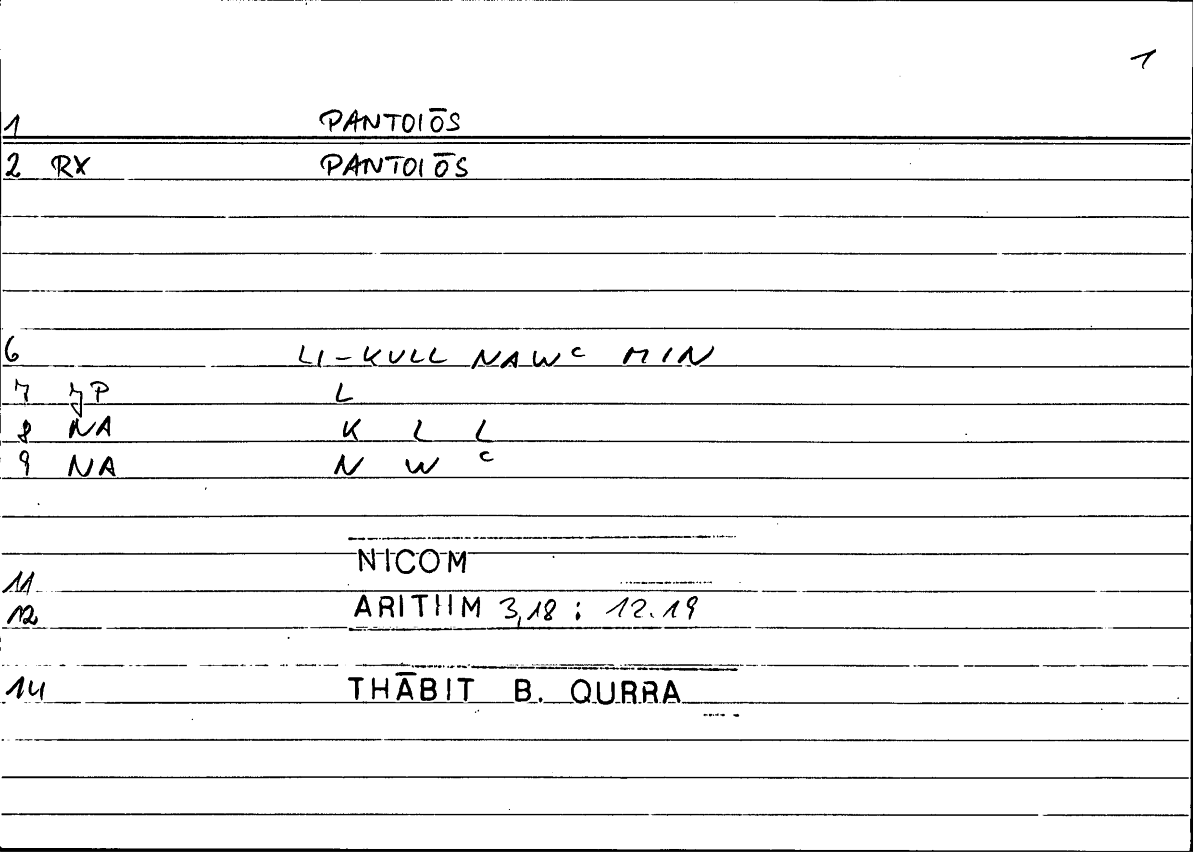 1
1 PANTOIŌS
2 RX PANTOIŌS
6 LI-KULL NAWᶜ MIN
7 JP L
8 NA K L L
9 NA N W ᶜ
11 NICOM
12 ARITHM 3,18 ; 12.19
14 THĀBIT B. QURRA